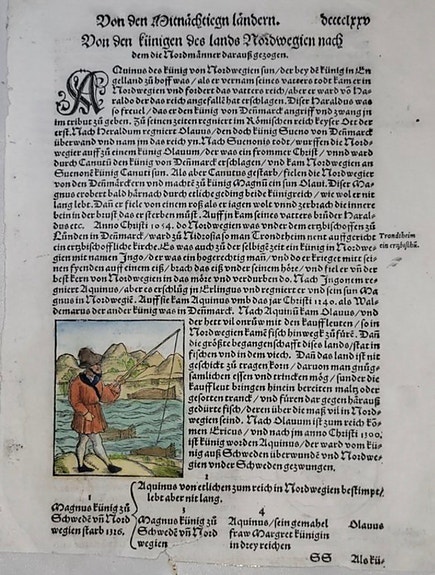 Von den Mitnächtiegn ländern. dccclxxv
Von den künigen des lands Nordwegien nach
dem die Nordmänner darauß gezogen.
AQuinus des künig von Nordwegien sun/der bey dē künig in En
gelland zů hoff was/ als er vernam seines vatters todt kam er in
Nordwegien vnd fordert das vatters reich/aber er ward võ Ha-
raldo der das reich angefallē hat erschlagen. Diser Haraldus was
so freuel/das er den künig von Deñmarck angriff vnd zwang jn
im tribut zů geben. Zů seinen zeiten regniert im Römischen reich keyser Ott der
erst. Nach Heraldum regniert Olauus/den doch künig Sueno von Deñmarck
überwand vnd nam jm das reich yn. Nach Suenonis todt/ wurffen die Nord-
wegier auff zů einem künig Olauum/der was ein frommer Christ/ vnnd ward
durch Canutū den künig võ Deñmarck erschlagen/ vnd kam Nordwegien an
Suenonē künig Canuti sun. Als aber Canutus gestarb/ fielen die Nordwegier
von den Dennmärckern vnd machtē zů künig Magnū ein sun Olaui. Diser Ma-
gnus erobert bald härnach durch eeliche geding beide künigreich/ wie wol er nit
lang lebt. Dañ er fiele von einem roß als er iagen wolt vnnd zerbrach die innere
bein in der brust das er sterben můst. Auff jn kam seines vatters brůder Haral-
dus etc. Anno Christi 1054. do Nordwegien was vnder dem ertzbischoffen zů
Lunden in Deñmarck/ ward zů Nidrosia so man Trondtheim nent auffgericht
ein ertzbischoffliche kirch. Es was auch zů der selbigē zeit ein künig in Nordwe-
gien mit namen Ingo/der was ein hogerechtig man/ vnd do er krieget mitt sei-
nen fyenden auff einem eiß/ brach das eiß vnder seinem höre/ vnd fiel er vñ der
best kern von Nordwegien in das möre vnd verdurben do. Nach Ingonem re-
gniert Aquinus/ aber es erschlůg jn Erlingus vnd regniert er vnd sein sun Ma
gnus in Nordwegiē. Auff sie kam Aquinus vmb das jar Christi 1240. als Wal-
demarus der ander künig was in Deñmarck. Nach Aquinū kam Olauus/ vnd
Trondtheim
ein ertzbisthū.
der hett vil onrůw mit den kauffleuten/ so in
Nordwegien kamē fisch hinwegk zů fůrē. Dañ
die größte begangenschafft dises lands/stat in
fischen vnd in dem viech. Dañ das land ist nit
geschickt zů tragen korn/ daruon man gnůg-
samlichen essen vnd trincken mög/ sunder die
kauffleut bringen hinein bereiten maltz oder
gesotten tranck/ vnd fůren dar gegen härauß
gedürte fisch/deren über die maß vil in Nord-
wegien seind. Nach Olauum ist zum reich kō-
men Ericus/ vnd nach jm anno Christi 1300.
ist künig worden Aquinus/der ward vom kü-
nig auß Schweden überwundē vnd Nordwe-
gien vnder Schweden gezwungen.
1
Magnus künig zů
Schwedē vñ Nord
wegien starb 1326.
2
Aquinus von eelichen zum reich in Nordwegien bestimpt/
lebt aber nit lang.
3
Magnus künig zů
Schwedē vñ Nord
wegien
4
Aquinus/sein gemahel
fraw Margret künigin
in drey reichen
Olauus
SS Als kü-